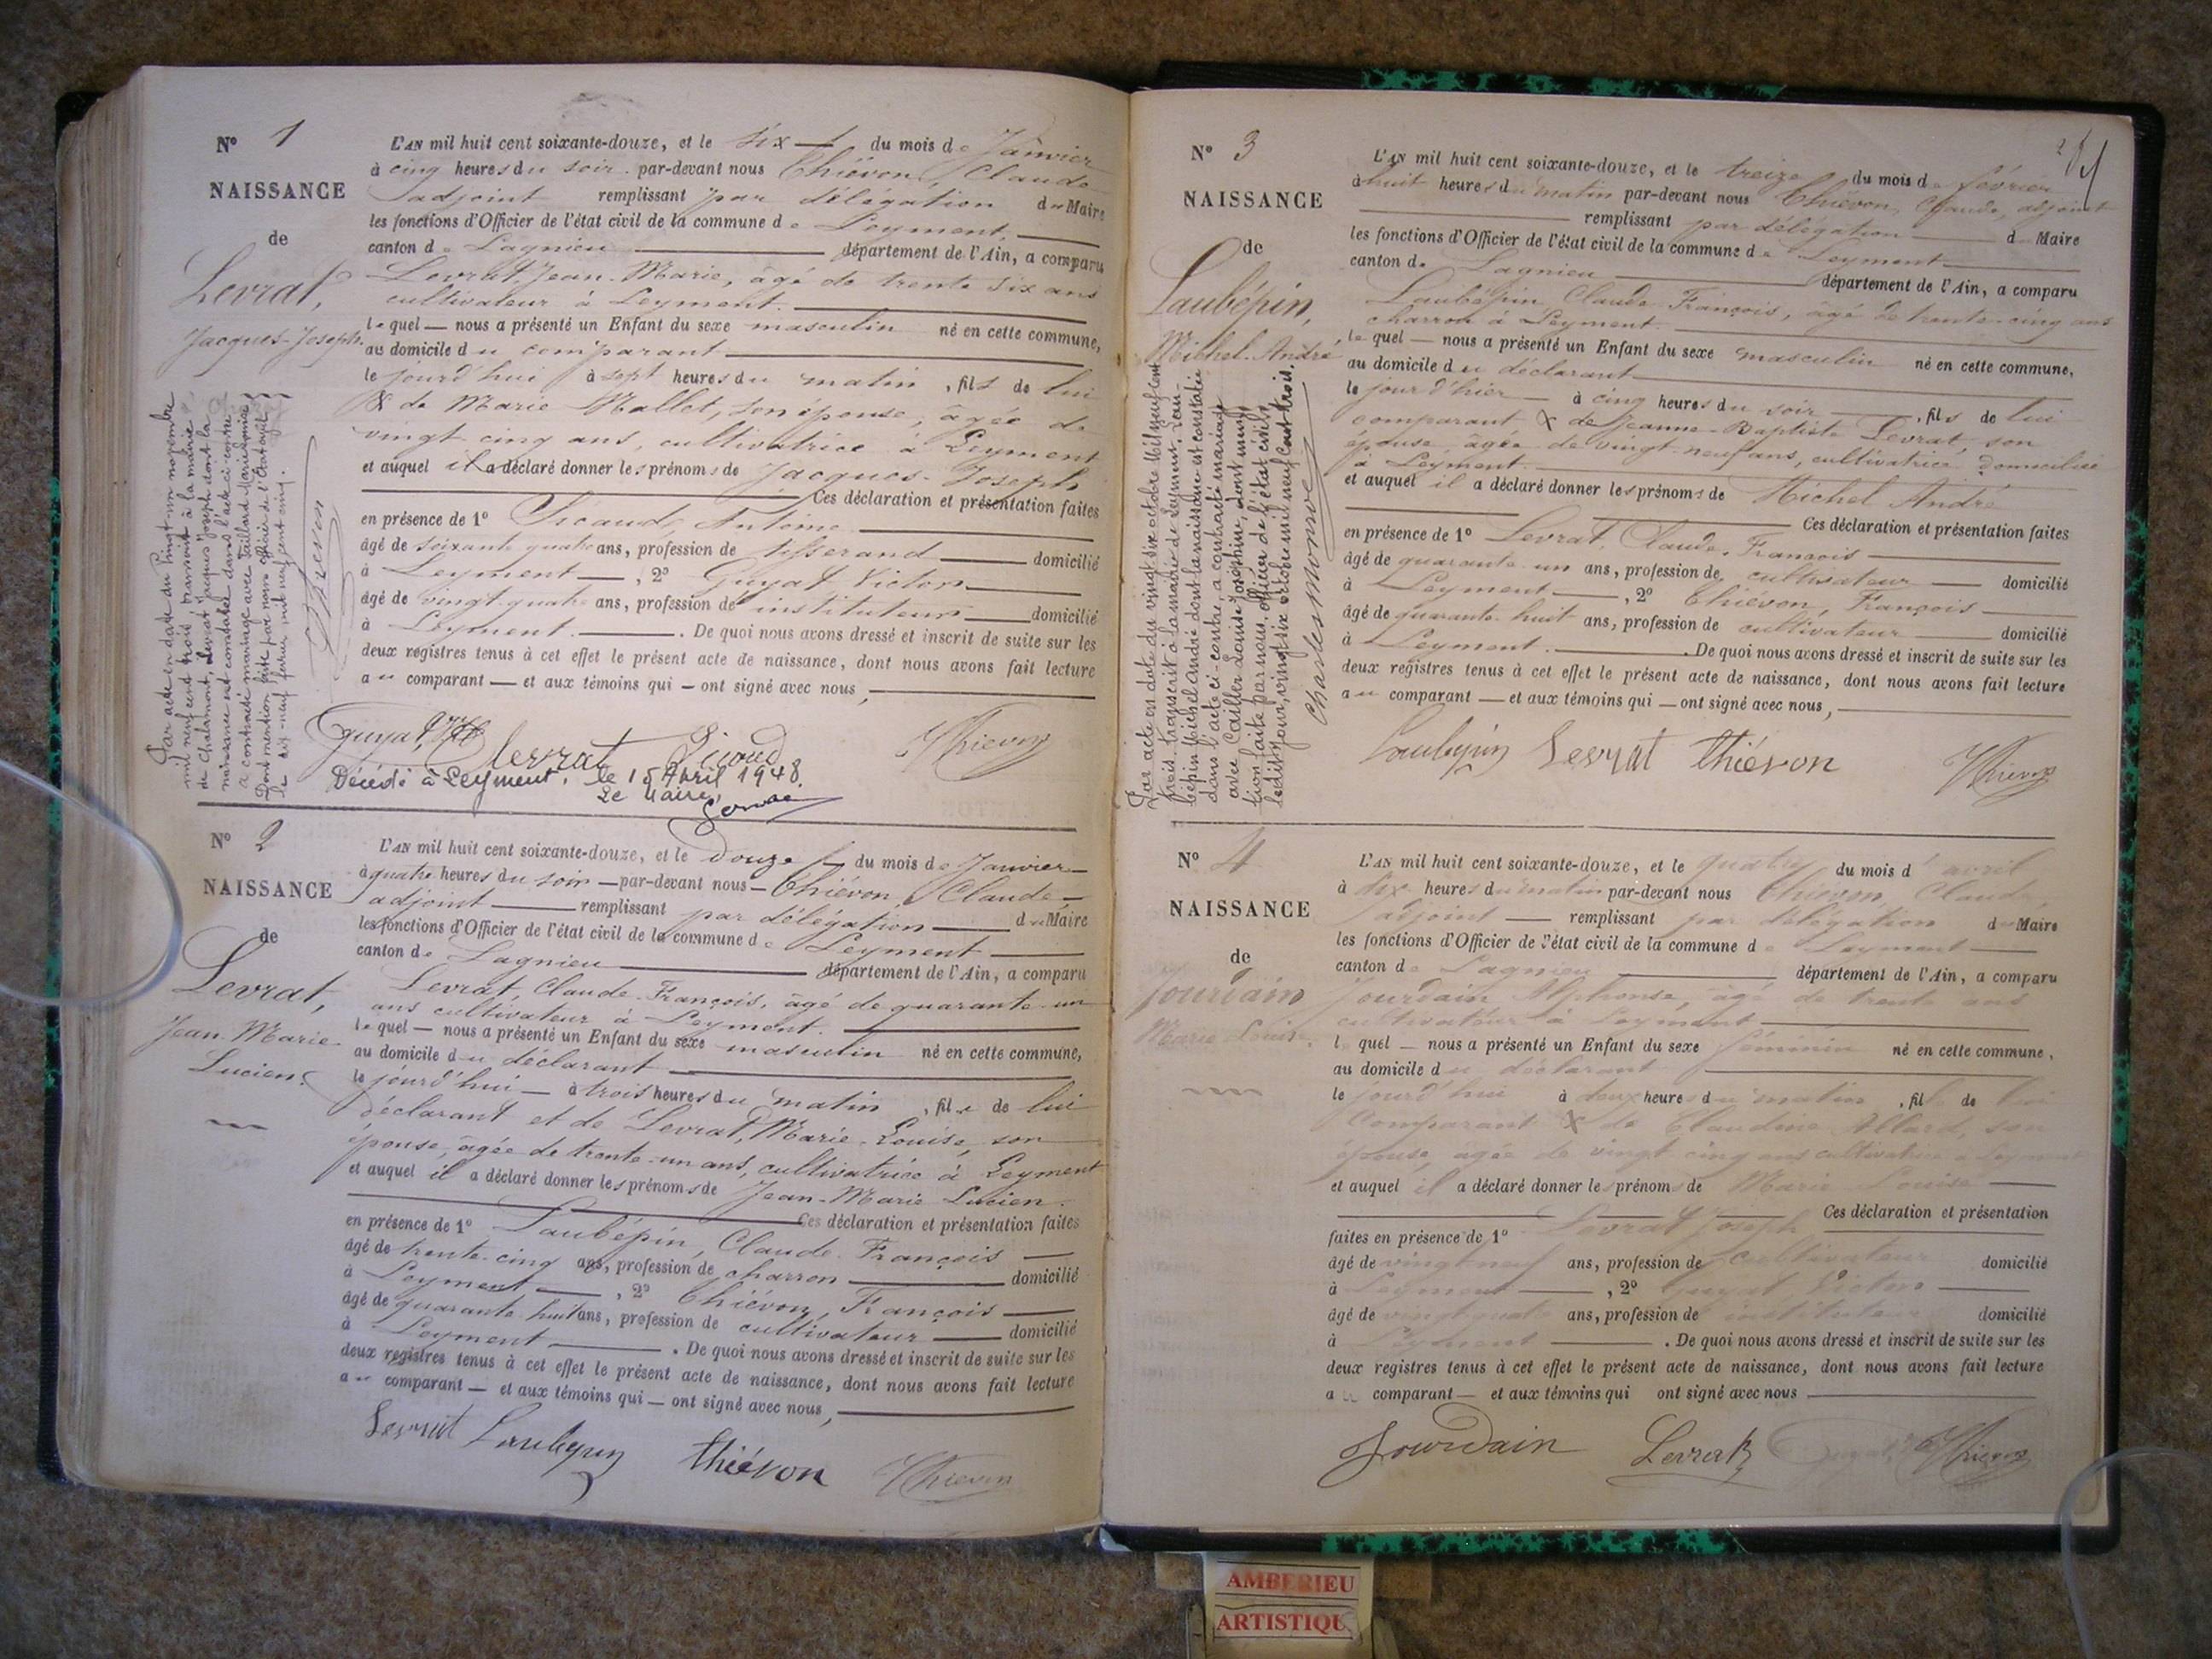 N° 1
NAISSANCE
de
Levrat,
Jacques-Joseph.
L'AN mil huit cent soixante-douze, et le six du mois de Janvier
à cinq heures du soir par-devant nous Thiévon, Claude
adjoint remplissant par délégation du Maire
les fonctions d'Officier de l'état civil de la commune de Leyment,
canton de Lagnieu département de l'Ain, a comparu
Levrat, Jean-Marie, âgé de trente six ans
cultivateur à Leyment.
lequel nous a présenté un Enfant du sexe masculin né en cette commune,
au domicile du comparant
le jourd'hui à sept heures du matin, fils de lui
& de Marie Mallet, son épouse, âgée de
vingt cinq ans, cultivatrice à Leyment
et auquel il a déclaré donner les prénoms de Jacques-Joseph
Ces déclaration et présentation faites
en présence de 1° Antoine
âgé de soixante quatre ans, profession de tisserand domicilié
à Leyment, 2° Guyat Victor
âgé de vingt-quatre ans, profession de instituteur domicilié
à Leyment. De quoi nous avons dressé et inscrit de suite sur les
deux registres tenus à cet effet le présent acte de naissance, dont nous avons fait lecture
au comparant et aux témoins qui ont signé avec nous,
Guyat Levrat Thiévon
Décédé à Leyment, le 15 Avril 1948.
Le Maire,
Par acte en date du vingt-un novembre
mil neuf cent trois, transcrit à la mairie
de Chalamont, Levrat Jacques Joseph dont la
naissance est constatée dans l'acte ci-contre
a contracté mariage avec
Dont mention faite par nous officier de l'Etat civil
le dix-neuf février mil neuf cent cinq.
N° 2
NAISSANCE
de
Levrat,
Jean-Marie
Lucien.
L'AN mil huit cent soixante-douze, et le douze du mois de Janvier
à quatre heures du soir par-devant nous Thiévon, Claude
adjoint remplissant par délégation du Maire
les fonctions d'Officier de l'état civil de la commune de Leyment
canton de Lagnieu département de l'Ain, a comparu
Levrat, Claude-François, âgé de quarante-un
ans cultivateur à Leyment.
lequel nous a présenté un Enfant du sexe masculin né en cette commune,
au domicile du déclarant
le jourd'hui à trois heures du matin, fils de lui
déclarant et de Levrat, Marie-Louise, son
épouse, âgée de trente-un ans, cultivatrice à Leyment
et auquel il a déclaré donner les prénoms de Jean-Marie Lucien.
Ces déclaration et présentation faites
en présence de 1° Laubépin, Claude-François
âgé de trente-cinq ans, profession de charron domicilié
à Leyment, 2° Thiévon, François
âgé de quarante huit ans, profession de cultivateur domicilié
à Leyment. De quoi nous avons dressé et inscrit de suite sur les
deux registres tenus à cet effet le présent acte de naissance, dont nous avons fait lecture
au comparant et aux témoins qui ont signé avec nous,
Levrat Laubépin Thiévon Thiévon
N° 3
NAISSANCE
de
Laubépin,
Michel-André
L'AN mil huit cent soixante-douze, et le treize du mois de février
à huit heures du matin par-devant nous Thiévon, Claude, adjoint
remplissant par délégation du Maire
les fonctions d'Officier de l'état civil de la commune de Leyment
canton de Lagnieu département de l'Ain, a comparu
Laubépin, Claude-François, âgé de trente-cinq ans
charron à Leyment.
lequel nous a présenté un Enfant du sexe masculin né en cette commune,
au domicile du déclarant
le jour d'hier à cinq heures du soir, fils de lui
comparant & de Jeanne-Baptiste Levrat, son
épouse âgée de vingt-neuf ans, cultivatrice domiciliée
à Leyment.
et auquel il a déclaré donner les prénoms de Michel André
Ces déclaration et présentation faites
en présence de 1° Levrat, Claude-François
âgé de quarante un ans, profession de cultivateur domicilié
à Leyment, 2° Thiévon, François
âgé de quarante-huit ans, profession de cultivateur domicilié
à Leyment. De quoi nous avons dressé et inscrit de suite sur les
deux registres tenus à cet effet le présent acte de naissance, dont nous avons fait lecture
au comparant et aux témoins qui ont signé avec nous,
Laubépin Levrat Thiévon Thiévon
Par acte en date du vingt six octobre Mil neuf cent
trois, transcrit à la mairie de Leyment, Lau-
bépin Michel André dont la naissance est constatée
dans l'acte ci-contre, a contracté mariage
avec Cailler Louise Joséphine, dont men-
tion faite par nous, officier de l'état civil,
ledit jour, vingt six octobre mil neuf cent trois.
N° 4
NAISSANCE
de
Jourdain
Marie Louise.
L'AN mil huit cent soixante-douze, et le quatre du mois d'avril
à six heures du matin par-devant nous Thiévon, Claude,
adjoint remplissant par délégation du Maire
les fonctions d'Officier de l'état civil de la commune de Leyment
canton de Lagnieu département de l'Ain, a comparu
Jourdain Alphonse, âgé de trente ans
cultivateur à Leyment
lequel nous a présenté un Enfant du sexe féminin né en cette commune,
au domicile du déclarant
le jourd'hui à deux heures du matin, fille de lui
Comparant & de Claudine Allard, son
épouse, âgée de vingt cinq ans cultivatrice à Leyment
et auquel il a déclaré donner les prénoms de Marie Louise
Ces déclaration et présentation
faites en présence de 1° Levrat Joseph
âgé de vingt neuf ans, profession de cultivateur domicilié
à Leyment, 2° Guyat Victor
âgé de vingt quatre ans, profession de instituteur domicilié
à Leyment. De quoi nous avons dressé et inscrit de suite sur les
deux registres tenus à cet effet le présent acte de naissance, dont nous avons fait lecture
au comparant et aux témoins qui ont signé avec nous
Jourdain Levrat Guyat Thiévon
AMBERIEU
ARTISTIQUE